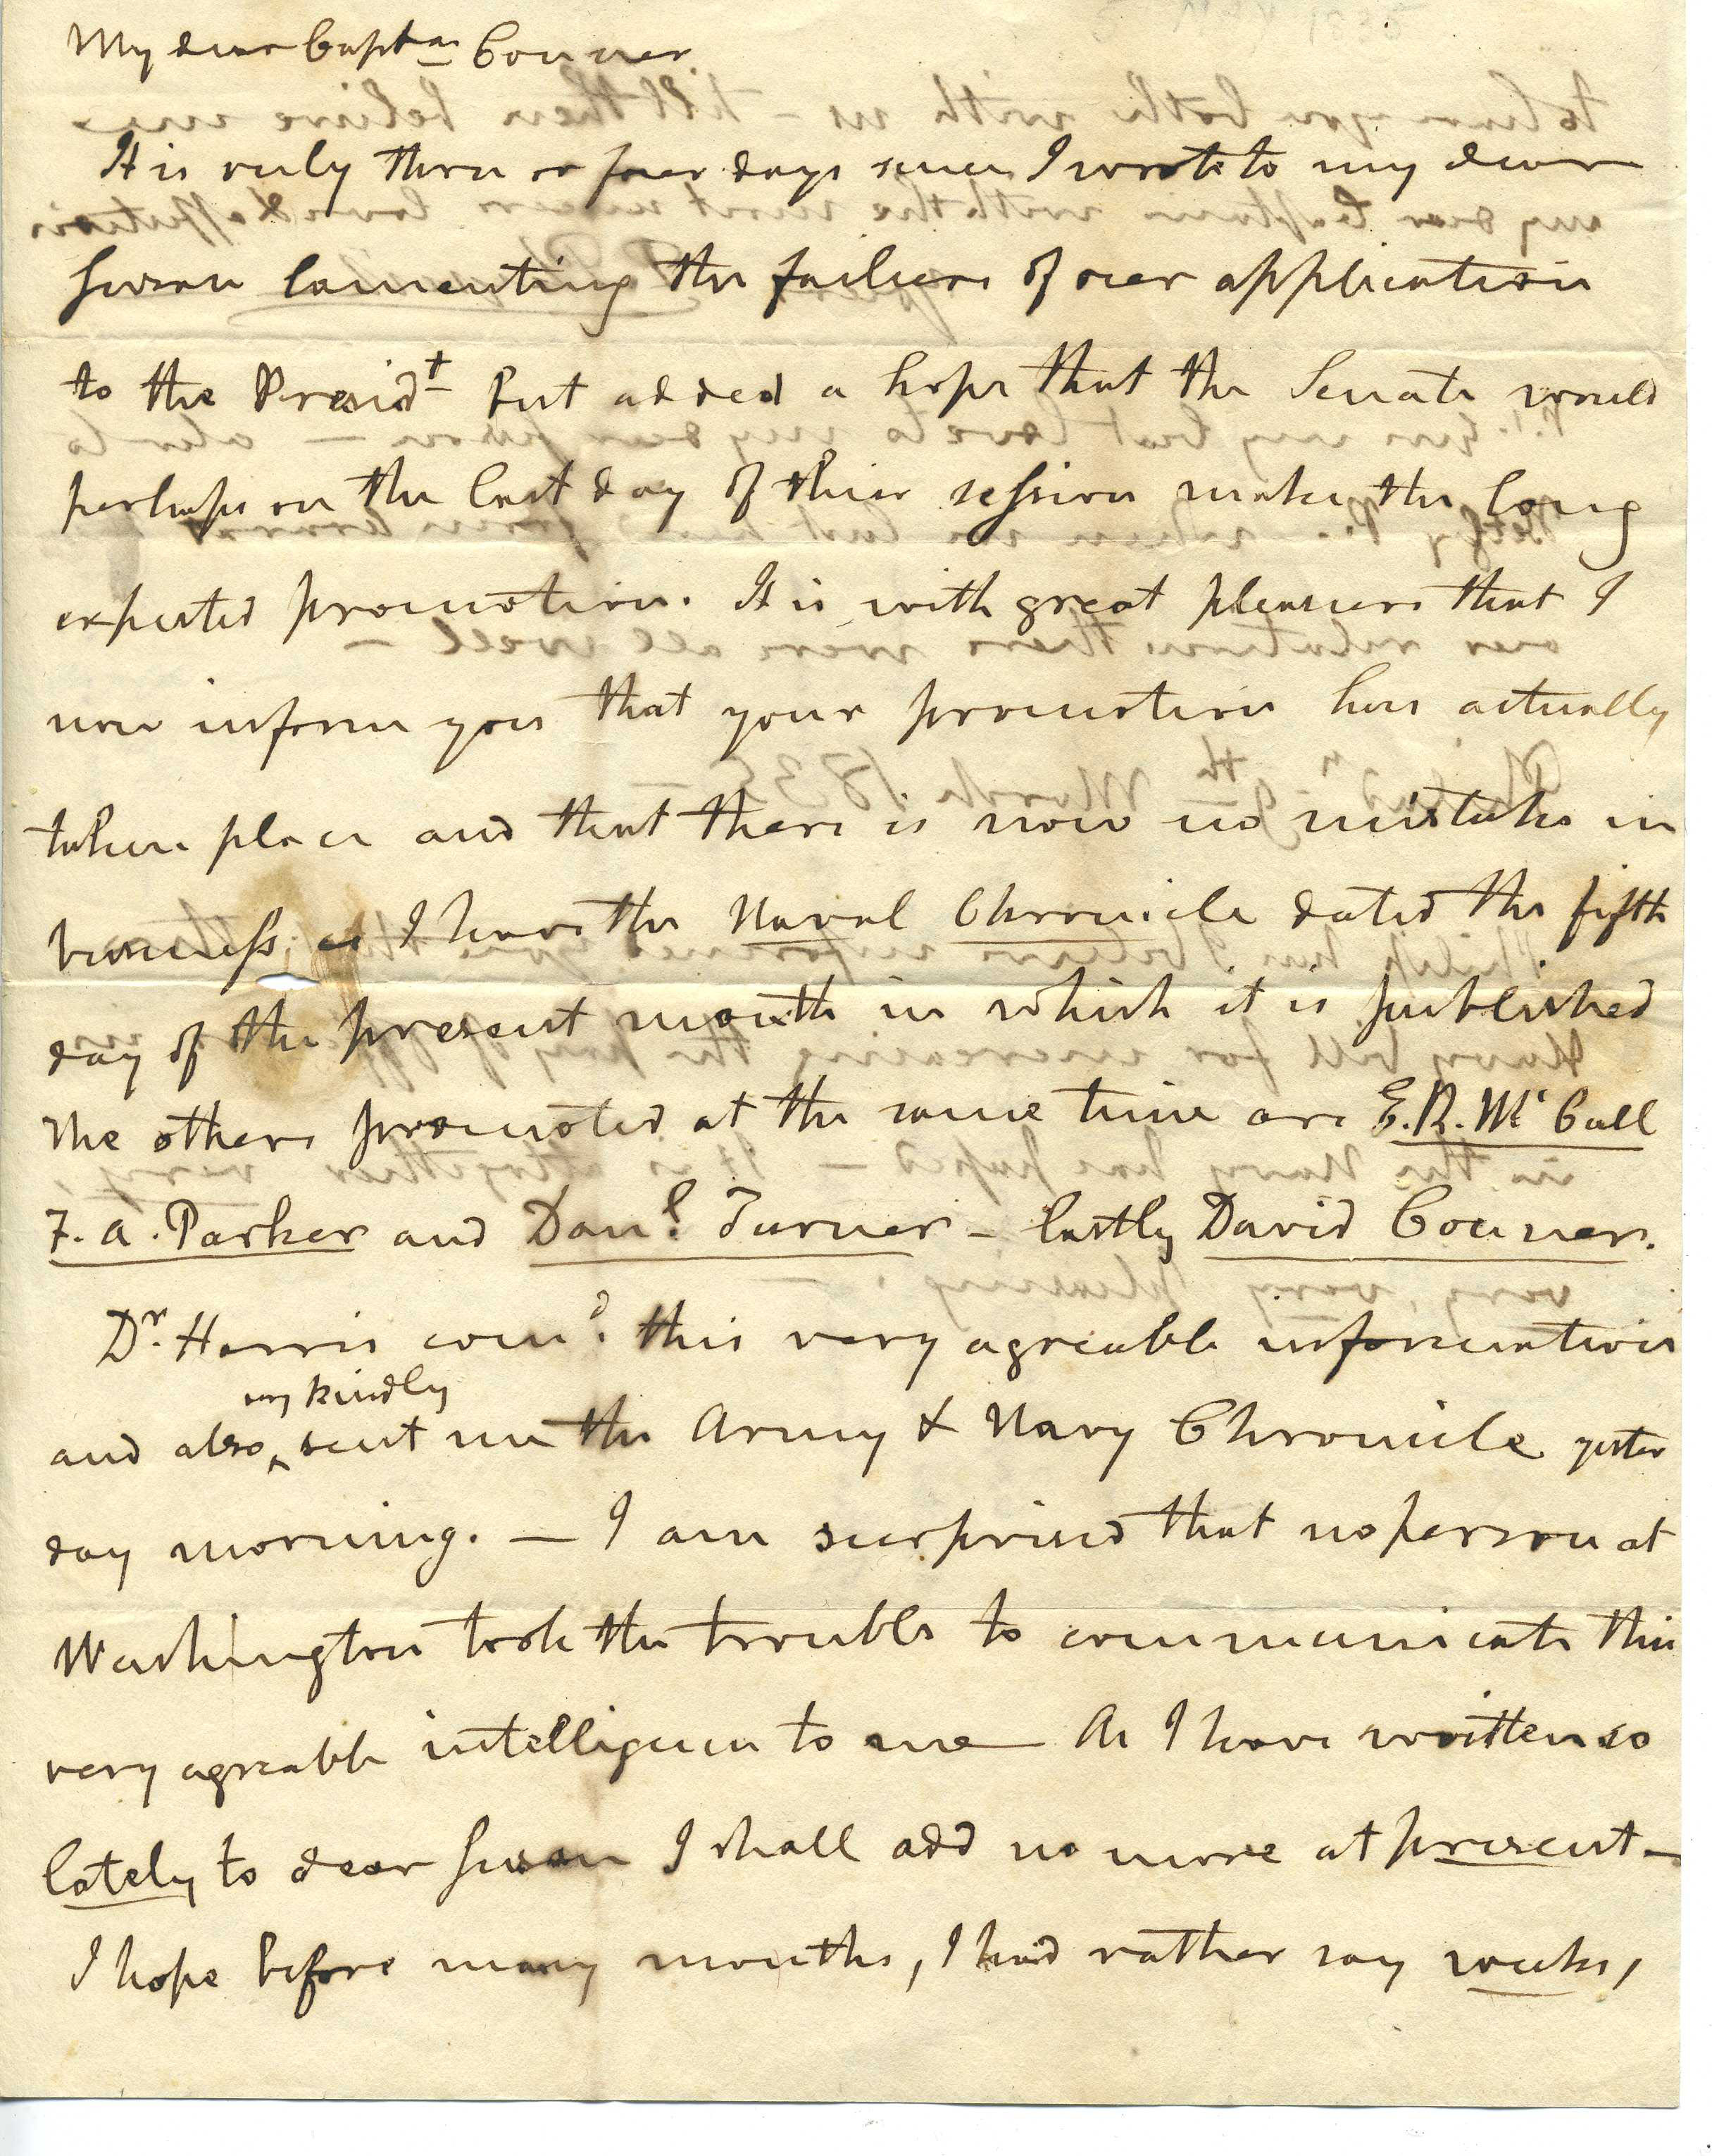 My dear Capt.n Conner
It is only three or four days since I wrote to my dear
Susan lamenting the failure of our application
to the Presid.t But added a hope that the Senate would
perhaps on the last day of their session make the long
expected promotion. It is with great pleasure that I
now inform you that your promotion has actually
taken place and that there is now no mistake in
business, as I have the Naval Chronicle dated the fifth
day of the present month in which it is published
The others promoted at the same time are E.R. McCall
F. A. Parker and Danl. Turner – lastly David Conner.
Dr. Harris com.d this very agreable information
my kindly
and also sent me the Army & Navy Chronicle yester
day morning. — I am surprised that no person at
Washington took the trouble to communicate this
very agreable intelligence to me — As I have written so
lately to dear Susan I shall add no more at present –
I hope before many months, I had rather say weeks,